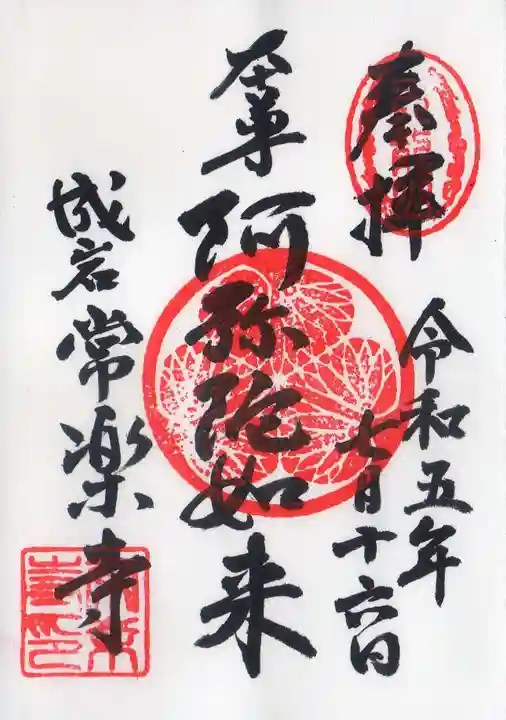 奉拝
令和五年
七月十六日
本尊
阿弥陀如来
成岩常楽寺